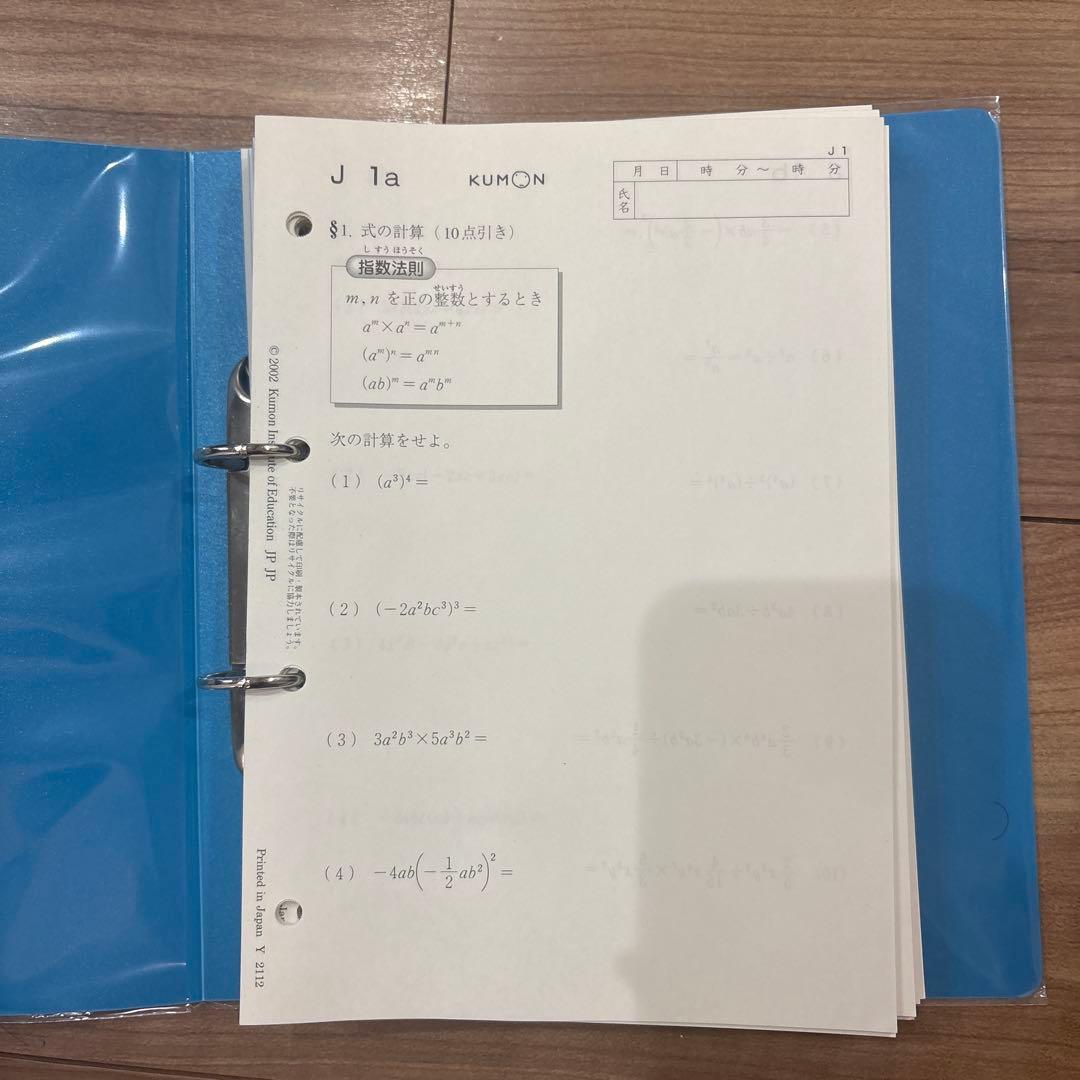 J 1
J 1a
KUMON
月 日 時 分〜 時 分
氏名
§1. 式の計算（10点引き）
しすうほうそく
指数法則
せいすう
m, n を正の整数とするとき
aᵐ×aⁿ＝aᵐ⁺ⁿ
(aᵐ)ⁿ＝aᵐⁿ
(ab)ᵐ＝aᵐbᵐ
次の計算をせよ。
(1) (a³)⁴＝
(2) (−2a²bc³)³＝
(3) 3a²b³×5a³b²＝
(4) −4ab(−1/2 ab²)²＝
© 2002 Kumon Institute of Education JP JP
リサイクルに配慮して印刷・製本されています。
不要となった際はリサイクルに協力しましょう。
Printed in Japan Y 2112